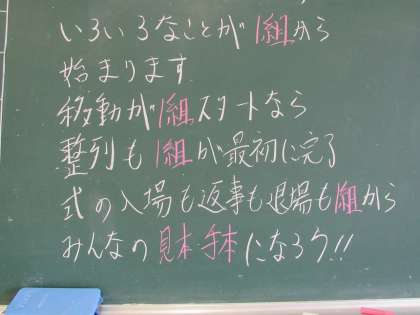 いろいろなことが1組から
始まります
移動が1組スタートなら
整列も1組が最初に完了
式の入場も返事も退場も1組から
みんなの見本・手本になろう!!